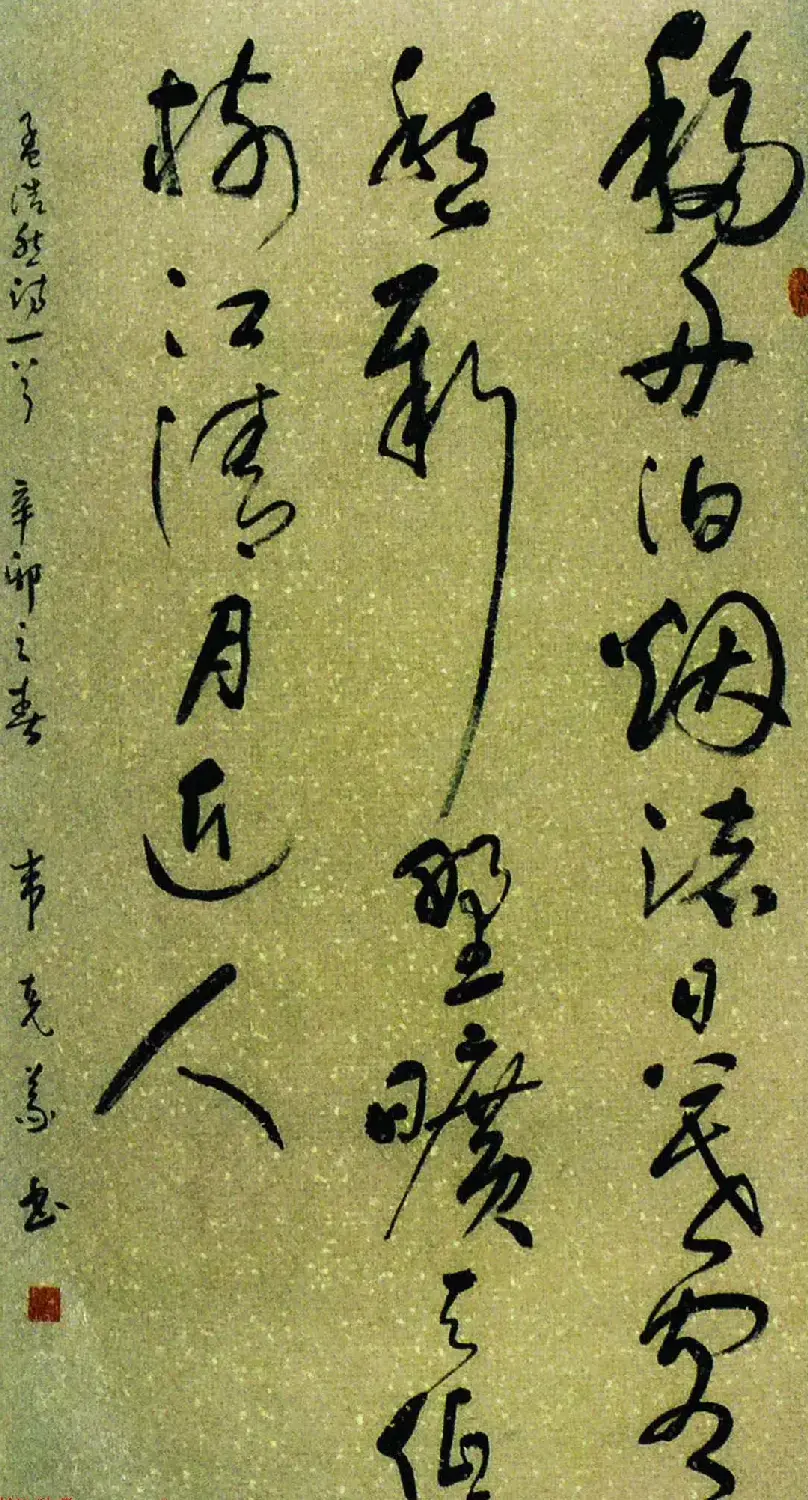 移舟泊烟渚日暮客
愁新野曠天低
樹江清月近人
孟浩然詩一首 辛卯之春 韋克義書